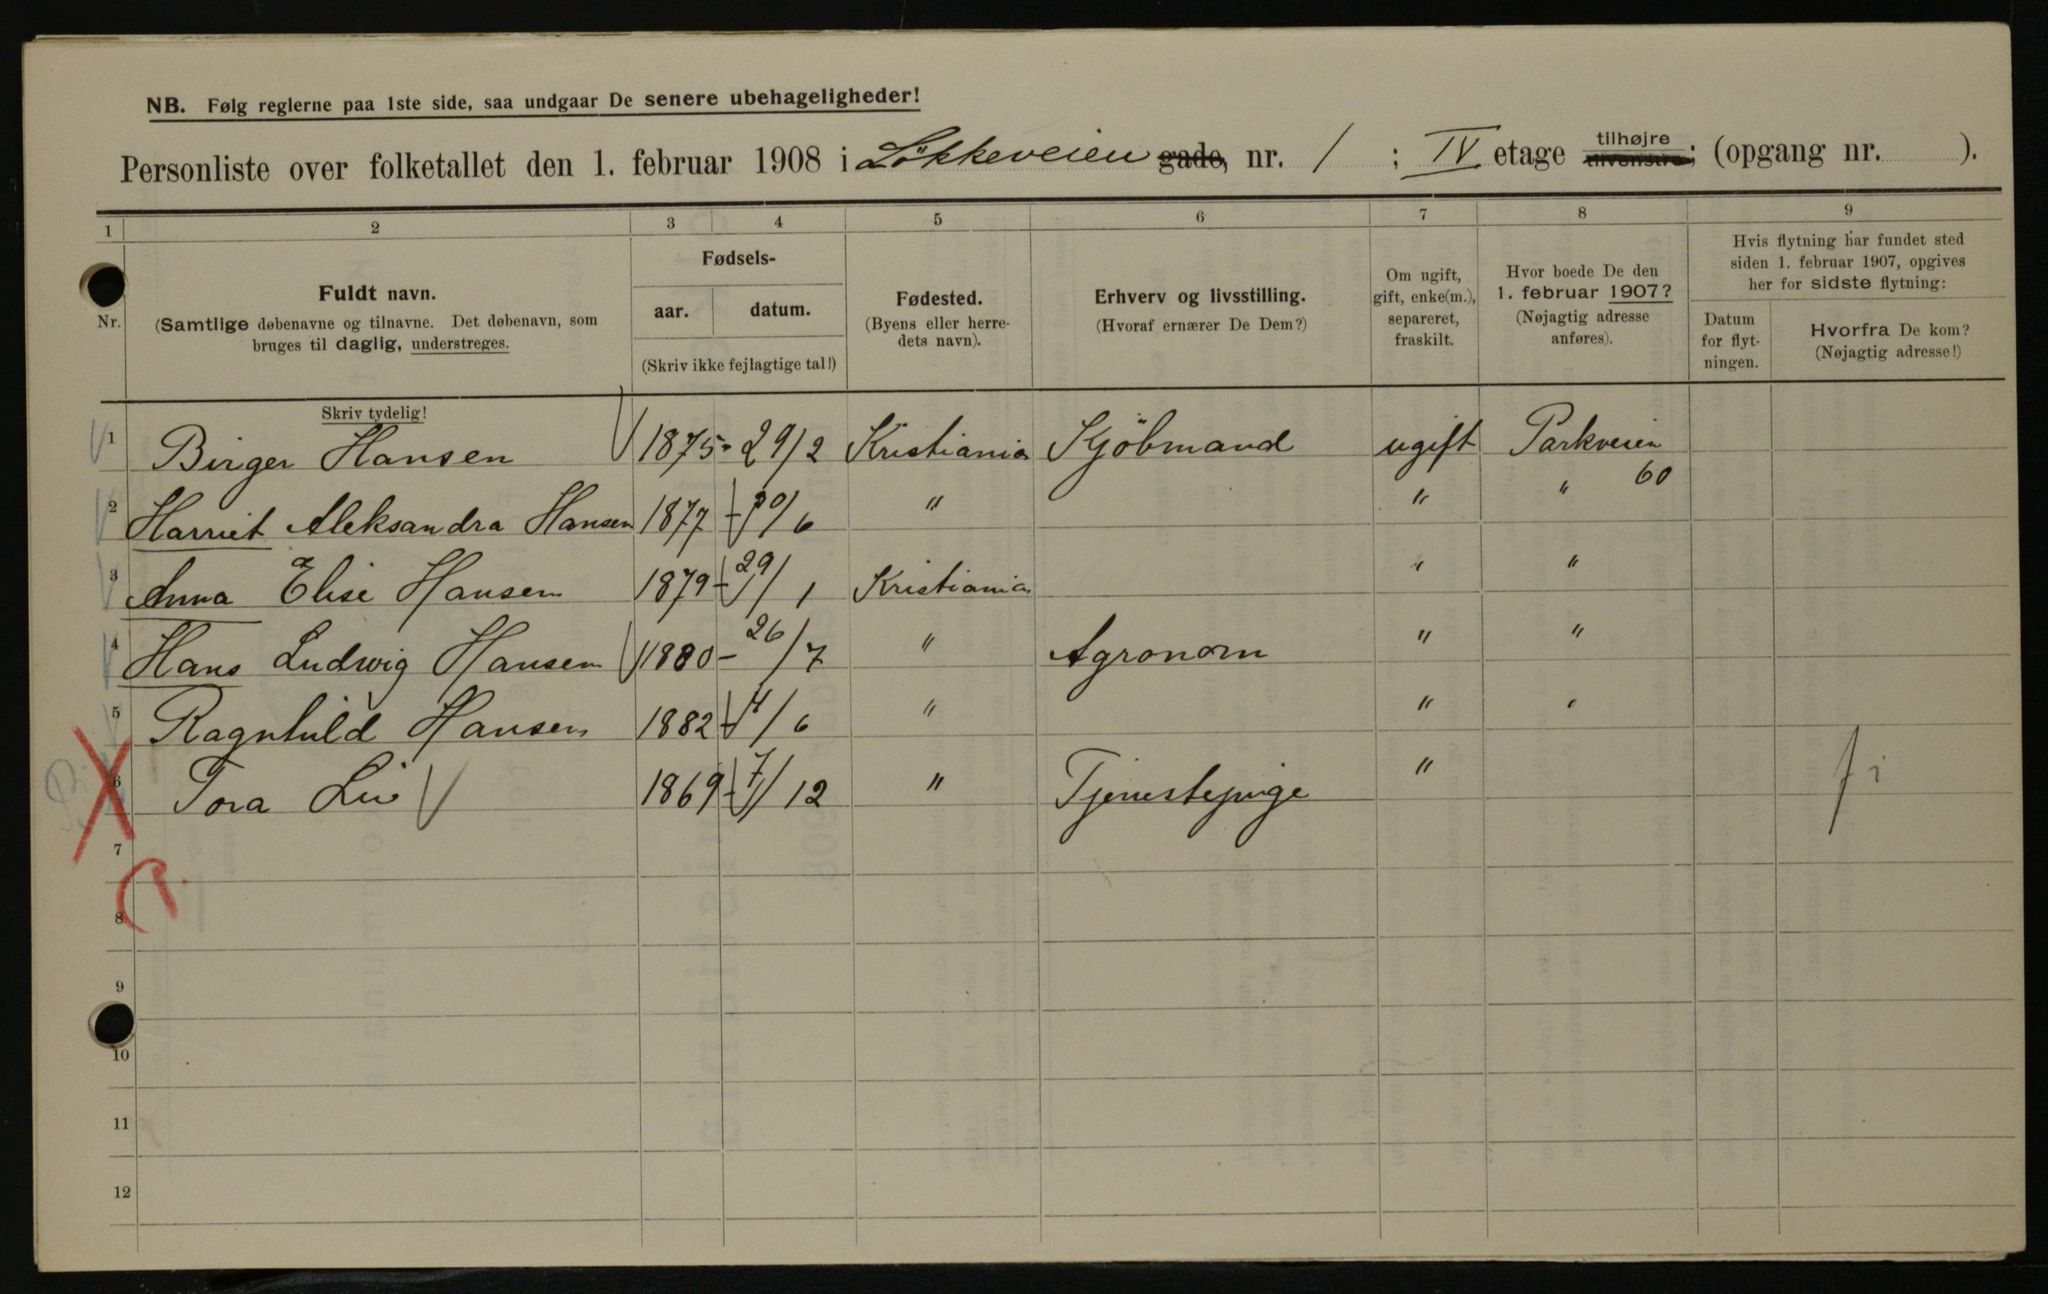 NB. Følg reglerne paa 1ste side, saa undgaar De senere ubehageligheder!
Personliste over folketallet den 1. februar 1908 i Løkkeveien gade, nr. 1 ; IV etage tilhøjre tilvenstre; (opgang nr. ).
1 2 3 4 5 6 7 8 9
Nr.
Fuldt navn.
(Samtlige døbenavne og tilnavne. Det døbenavn, som
bruges til daglig, understreges.
Skriv tydelig!
Fødsels-
aar. datum.
(Skriv ikke fejlagtige tal!)
Fødested.
(Byens eller herre-
dets navn).
Erhverv og livsstilling.
(Hvoraf ernærer De Dem?)
Om ugift,
gift, enke(m.),
separeret,
fraskilt.
Hvor boede De den
1. februar 1907?
(Nøjagtig adresse
anføres).
Hvis flytning har fundet sted
siden 1. februar 1907, opgives
her for sidste flytning:
Datum
for flyt-
ningen.
Hvorfra De kom?
(Nøjagtig adresse!)
1 Birger Hansen 1875- 29/2 Kristiania Kjöbmand ugift Parkveien 60
2 Harriet Aleksandra Hansen 1877 - /6 " " "
3 Anna Elise Hansen 1879 - 29/1 Kristiania " "
4 Hans Ludwig Hansen 1880 - 26/7 " Agronom " "
5 Ragnhild Hansen 1882 - 4/6 " " "
6 Tora Lie 1869 - 7/12 " Tjenestepige "
7
8
9
10
11
12